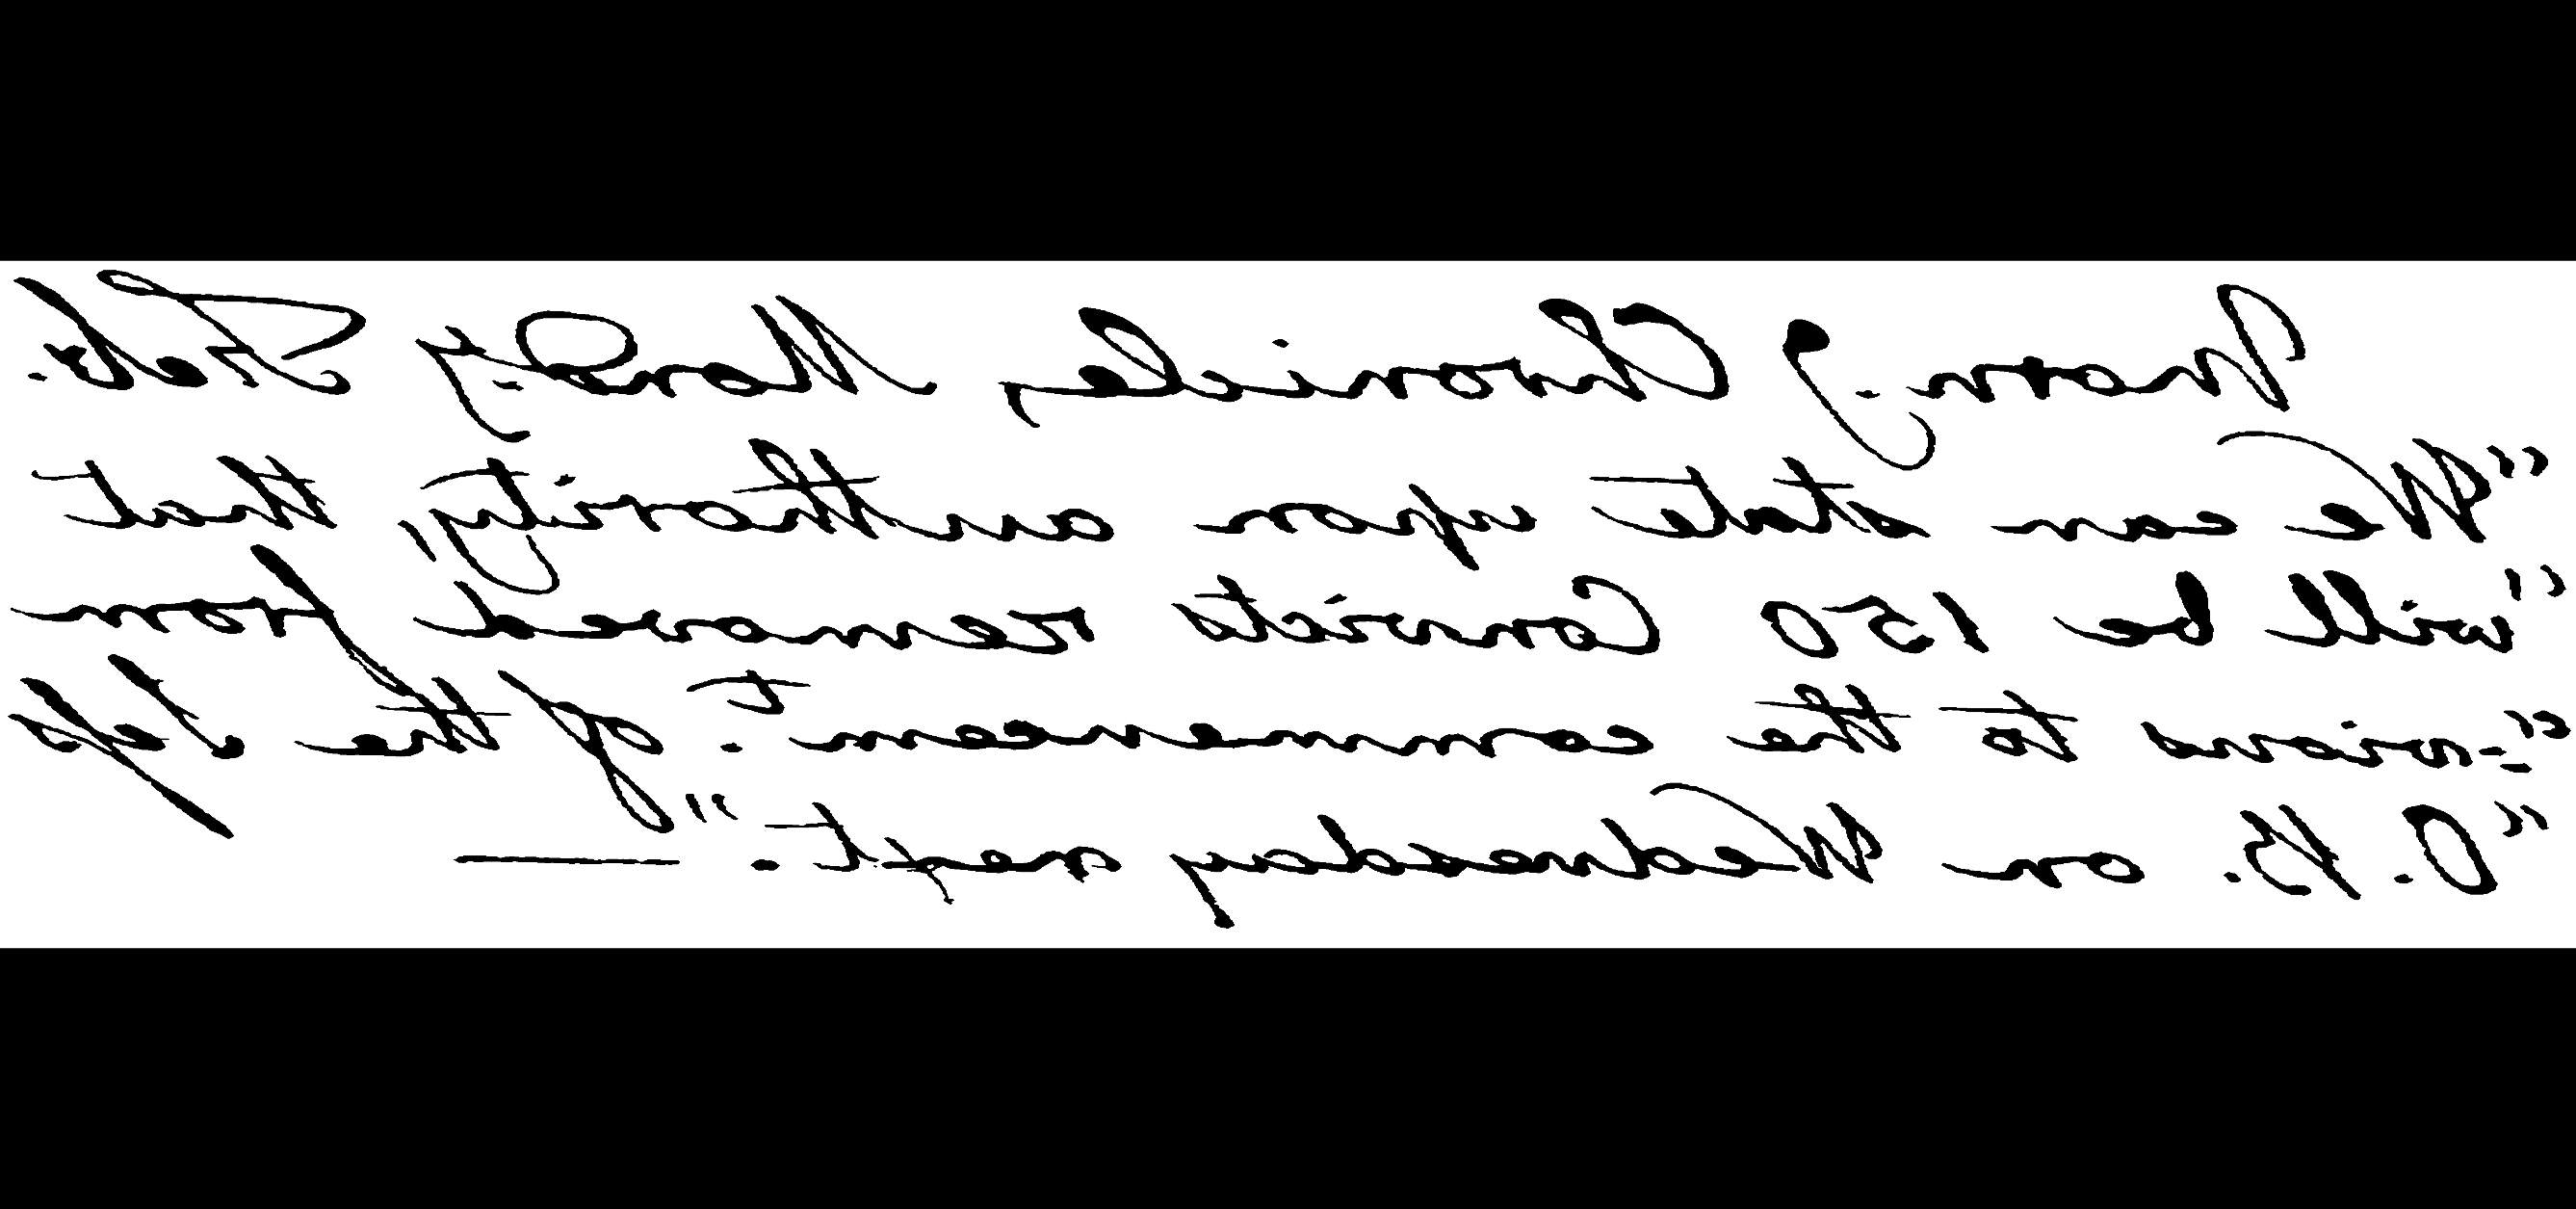 Morn.g Chronicle, Monday Feb.
"We can state upon authority, that
"will be 150 Convicts removed from
"=vious to the commencem.t of the Sefs
"O. B. on Wednesday next." —